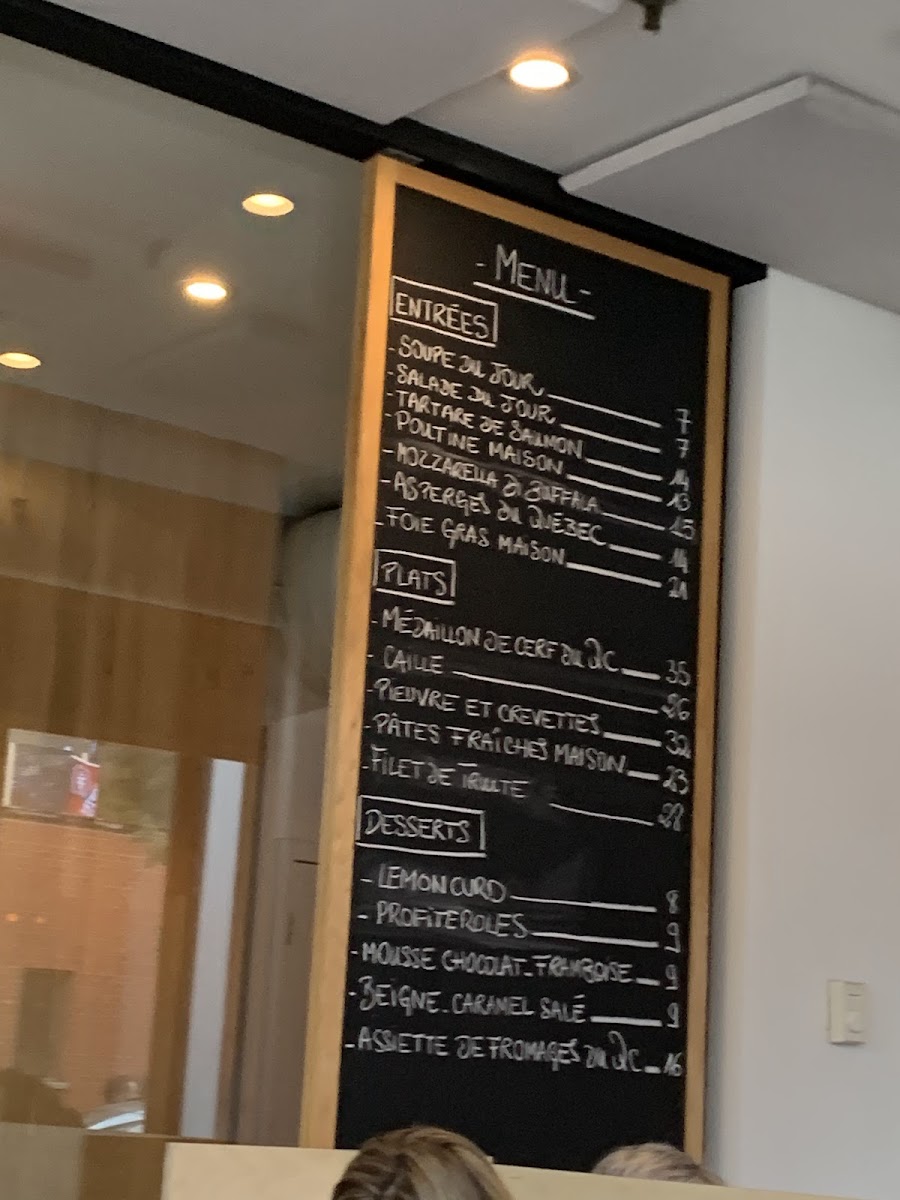 - MENU -
ENTRÉES
- SOUPE DU JOUR 7
- SALADE DU JOUR 7
- TARTARE DE SAUMON 14
- POUTINE MAISON 13
- MOZZARELLA DI BUFFALA 15
- ASPERGES DU QUÉBEC 14
- FOIE GRAS MAISON 21
PLATS
- MÉDAILLON DE CERF DU QC 35
- CAILLE 26
- PIEUVRE ET CREVETTES 32
- PÂTES FRAÎCHES MAISON 23
- FILET DE TRUITE 28
DESSERTS
- LEMON CURD 8
- PROFITEROLES 9
- MOUSSE CHOCOLAT-FRAMBOISE 9
- BEIGNE-CARAMEL SALÉ 9
- ASSIETTE DE FROMAGES DU QC 16